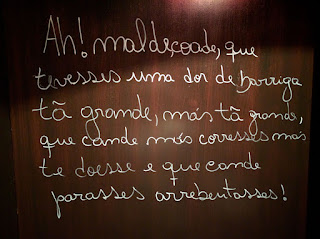 Ah! maldeçoade, que
tevesses uma dor de barriga
tã grande, más tã grande,
que cande más corresses más
te doesse e que cande
parasses arrebentasses!